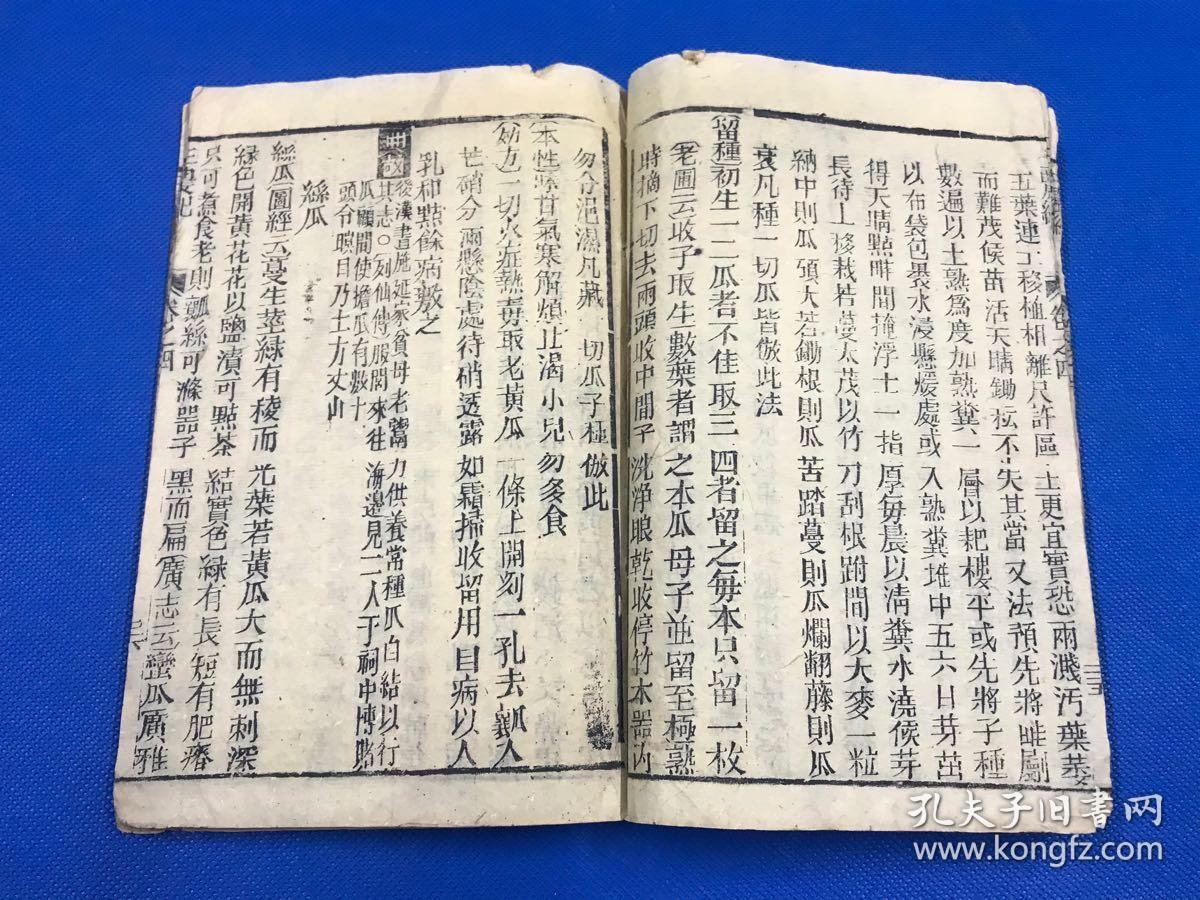 五葉連土移植相離尺許區土更宜實恐雨濺汚葉萎
而難茂候苗活天晴鋤松不失其當又法預先將畦劚
數遍以土熟爲度加熟糞一層以耙耬平或先將子種
以布袋包裹水浸懸煖處或入熟糞堆中五六日芽茁
得天晴點畦間掩浮土一指厚每晨以清糞水澆候芽
長待上移栽若蔓太茂以竹刀刮根跗間以大麥一粒
納中則瓜碩大若鋤根則瓜苦踏蔓則瓜爛翻藤則瓜
衰凡種一切瓜皆倣此法
留種初生一二瓜者不佳取三四者留之每本只留一枚
老圃云收子取生數葉者謂之本瓜母子並留至極熟
時摘下切去兩頭收中間子洗淨眼乾收停竹木器內
勿令浥濕凡藏一切瓜子種倣此
本性味甘氣寒解煩止渴小兒勿多食
妙方一切火症熱毒取老黃瓜一條上開刻一孔去瓤入
芒硝分兩懸陰處待硝透露如霜掃收留用目病以人
乳和點餘病敷之
典故後漢書施延家貧母老躬力供養常種瓜自給以行
其志○列仙傳服閭來往海邊見二人于祠中博賭
瓜顧閭使擔瓜有數十
頭令瞑目乃上方丈山
絲瓜
絲瓜圖經云蔓生莖綠有稜而光葉若黃瓜大而無刺深
綠色開黃花花以鹽漬可點茶結實色綠有長短有肥瘠
只可煮食老則瓤絲可滌器子黑而扁廣志云蠻瓜廣雅
卷之四
卷之四
孔夫子旧書网
www.kongfz.com